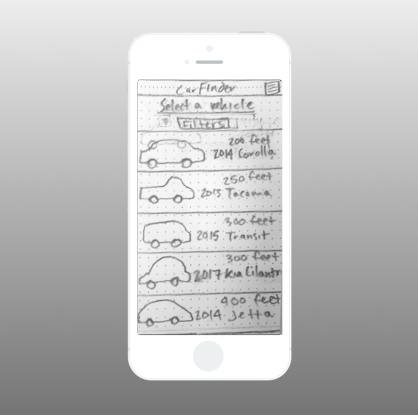 CarFinder
Select a vehicle
Filters
200 feet
2014 Corolla
250 feet
2013 Tacoma
300 feet
2015 Transit
300 feet
2017 Kia Cilantro
400 feet
2014 Jetta